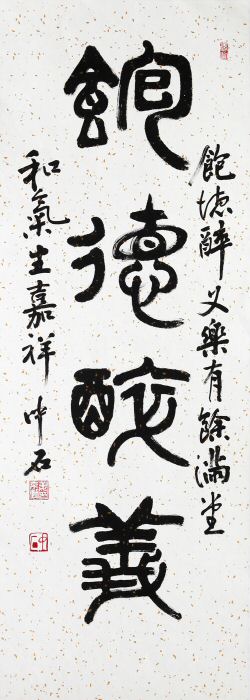 飽德醉義
飽德醉义樂有餘滿堂
和氣生嘉祥 中石